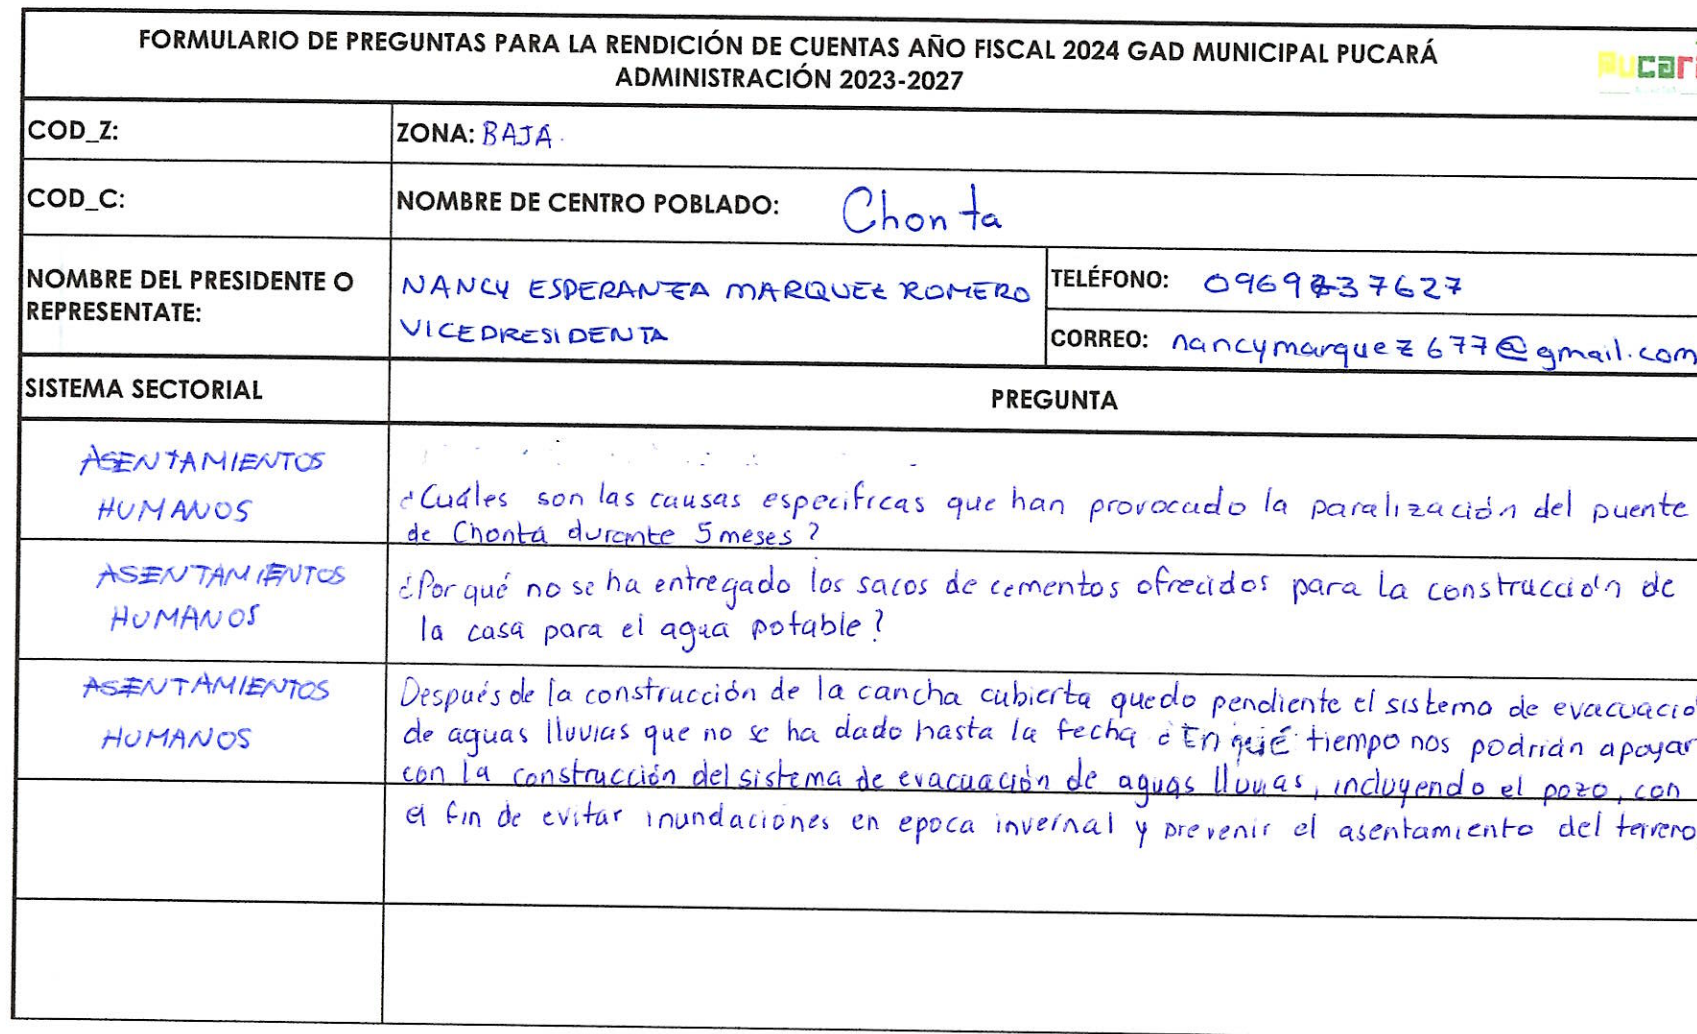 FORMULARIO DE PREGUNTAS PARA LA RENDICIÓN DE CUENTAS AÑO FISCAL 2024 GAD MUNICIPAL PUCARÁ
ADMINISTRACIÓN 2023-2027
Pucar
COD_Z:
ZONA: BAJA.
COD_C:
NOMBRE DE CENTRO POBLADO: Chonta
NOMBRE DEL PRESIDENTE O
REPRESENTATE:
NANCY ESPERANZA MARQUEZ ROMERO
VICEPRESIDENTA
TELÉFONO:
CORREO: nancymarquez677@gmail.com
SISTEMA SECTORIAL
PREGUNTA
ASENTAMIENTOS
HUMANOS
¿Cuáles son las causas especificas que han provocado la paralización del puente
de Chonta durante 5 meses?
ASENTAMIENTOS
HUMANOS
¿Por qué no se ha entregado los sacos de cementos ofrecidos para la construcción de
la casa para el agua potable?
ASENTAMIENTOS
HUMANOS
Después de la construcción de la cancha cubierta quedo pendiente el sistema de evacuacio
de aguas lluvias que no se ha dado hasta la fecha ¿En qué tiempo nos podrián apoyar
con la construcción del sistema de evacuación de aguas lluvias, incluyendo el pozo, con
el fin de evitar inundaciones en epoca invernal y prevenir el asentamiento del terreno